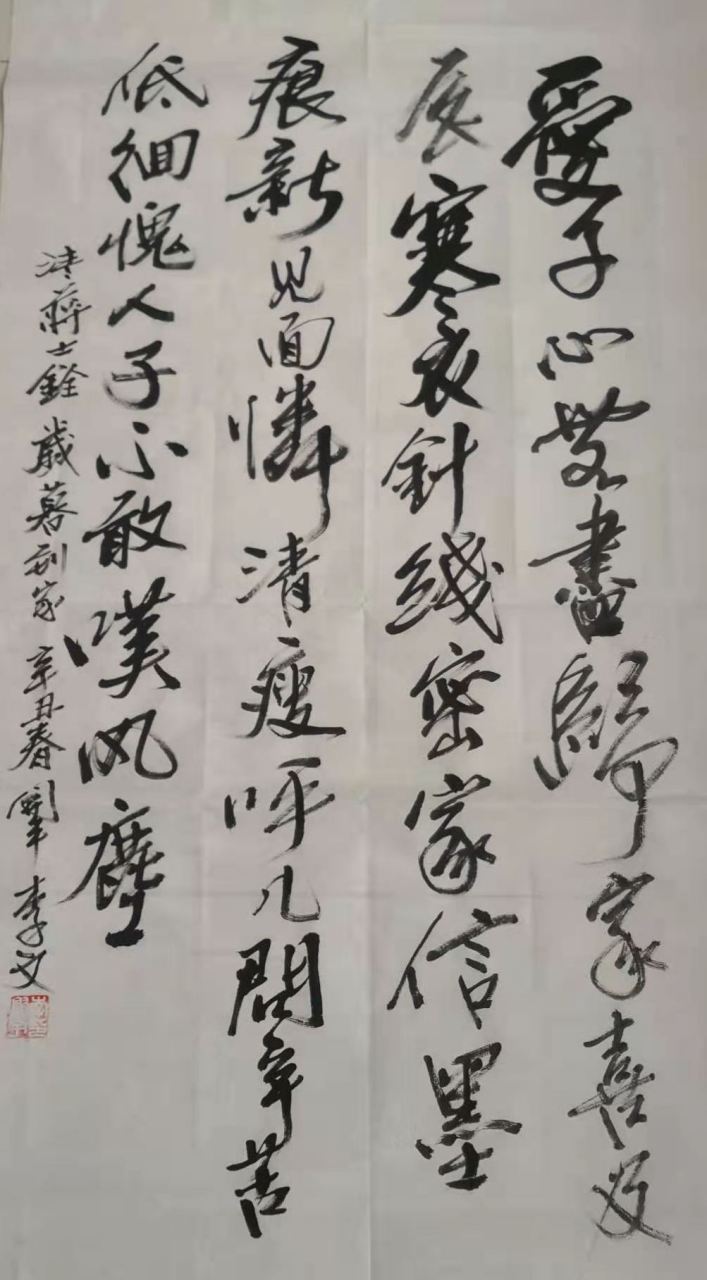 愛子心無盡歸家喜及
辰寒衣針綫密家信墨
痕新見面憐清瘦呼儿問辛苦
低徊愧人子不敢嘆风塵
清蔣士銓歲暮到家辛丑春 李文